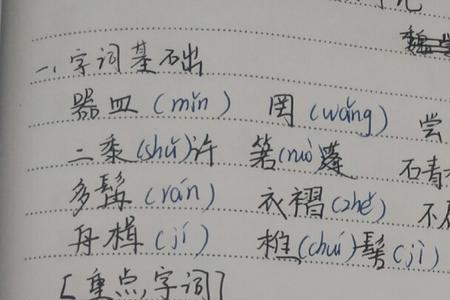 一、字词基础
器皿(mǐn) 罔(wǎng) 尝
二黍(shǔ)许 箬(ruò)篷 石青
多髯(rán) 衣褶(zhě) 不
舟楫(jí) 椎(chuí)髻(jì)
[重点字词]